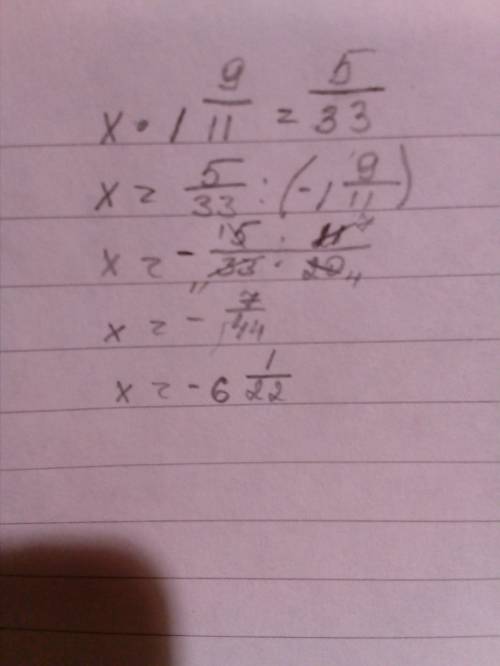 x • 1 9/11 = 5/33
x = 5/33 : (-1 9/11)
x = - 5 · 11 / 33 · 20
x = - 7/44
x = - 6 1/22